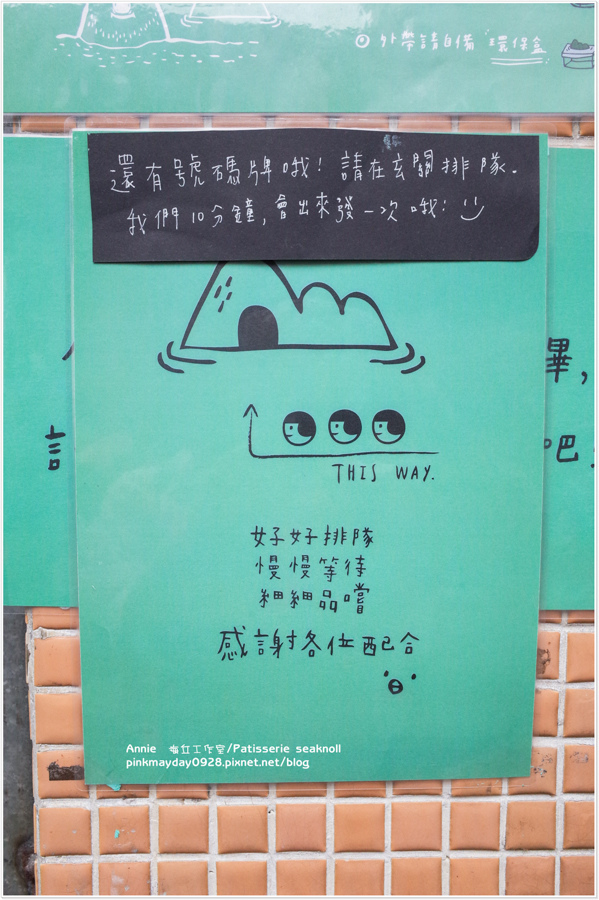 ◎ 外帶請自備 環保盒
還有號碼牌哦! 請在玄關排隊.
我們10分鐘,會出來發一次哦!
畢,
計
吧
THIS WAY.
好好排隊
慢慢等待
細細品嚐
感謝各位配合
Annie
工作室/Patisserie seaknoll
pinkmayday0928.pixnet.net/blog